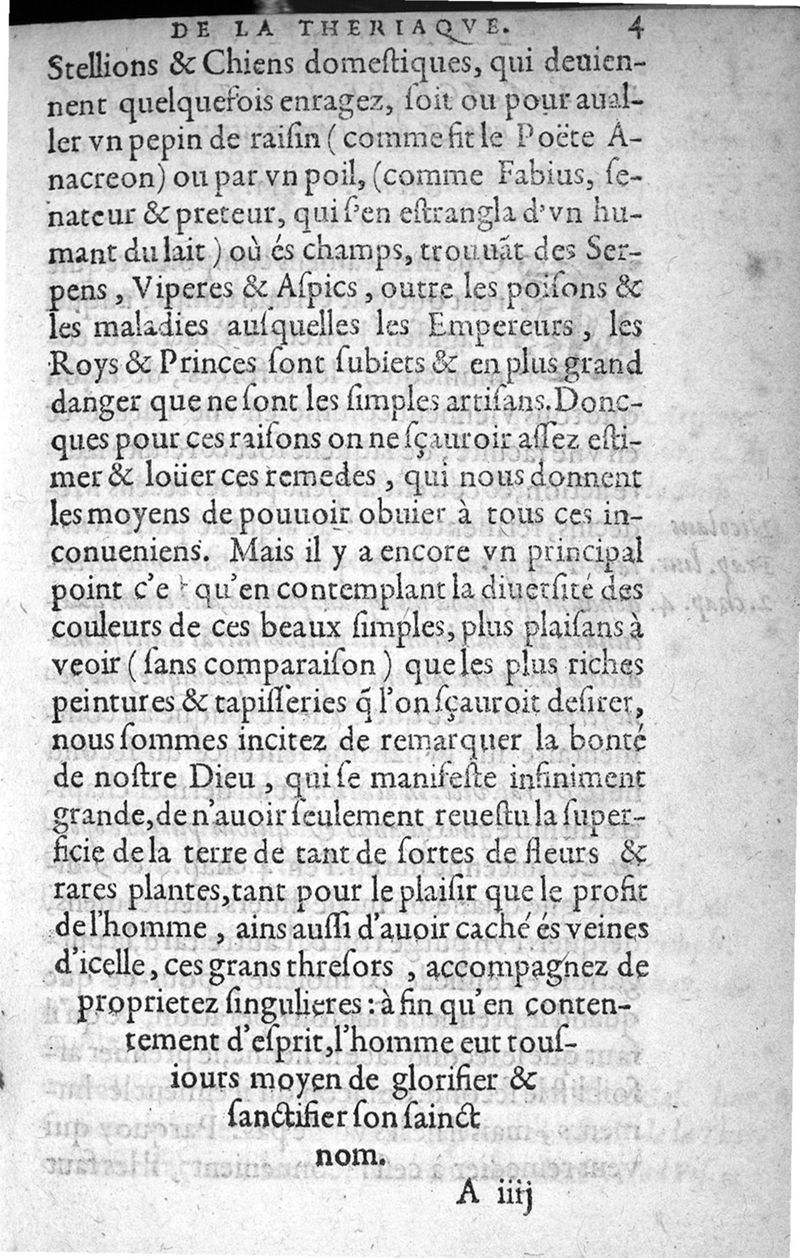 DE LA THERIAQVE. 4
Stellions & Chiens domeſtiques, qui deuien-
nent quelquefois enragez, ſoit ou pour aual-
ler vn pepin de raiſin (comme fit le Poëte A-
nacreon) ou par vn poil, (comme Fabius, ſe-
nateur & preteur, qui ſ'en eſtrangla d'vn hu-
mant du lait) où és champs, trouuāt des Ser-
pens, Viperes & Aſpics, outre les poiſons &
les maladies auſquelles les Empereurs, les
Roys & Princes ſont ſubiets & en plus grand
danger que ne ſont les ſimples artiſans. Donc-
ques pour ces raiſons on ne ſçauroir aſſez eſti-
mer & loüer ces remedes, qui nous donnent
les moyens de pouuoir obuier à tous ces in-
conueniens. Mais il y a encore vn principal
point c'e qu'en contemplant la diuerſité des
couleurs de ces beaux ſimples, plus plaiſans à
veoir (ſans comparaiſon) que les plus riches
peintures & tapiſſeries q̃ l'on ſçauroit deſirer,
nous ſommes incitez de remarquer la bonté
de noſtre Dieu, qui ſe manifeſte infiniment
grande, de n'auoir ſeulement reueſtu la ſuper-
ficie de la terre de tant de ſortes de fleurs &
rares plantes, tant pour le plaiſir que le profit
de l'homme, ains auſſi d'auoir caché és veines
d'icelle, ces grans threſors, accompagnez de
proprietez ſingulieres: à fin qu'en conten-
tement d'eſprit, l'homme eut touſ-
iours moyen de glorifier &
ſanctifier ſon ſainct
nom.
A iiij